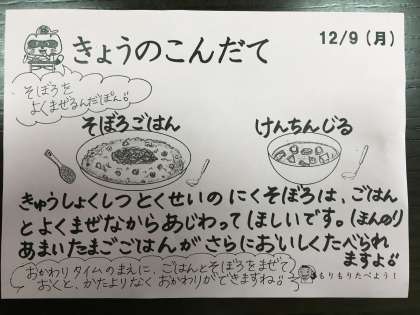 きょうのこんだて
12/9（月）
そぼろを
よくまぜるんだぽん♪
そぼろごはん
けんちんじる
きゅうしょくしつとくせいのにくそぼろは、ごはん
とよくまぜながらあじわってほしいです。ほんのり
あまいたまごごはんがさらにおいしくたべられ
ますよ♪
おかわりタイムのまえに、ごはんとそぼろをまぜて
おくと、かたよりなくおかわりができますね♪
もりもりたべよう！